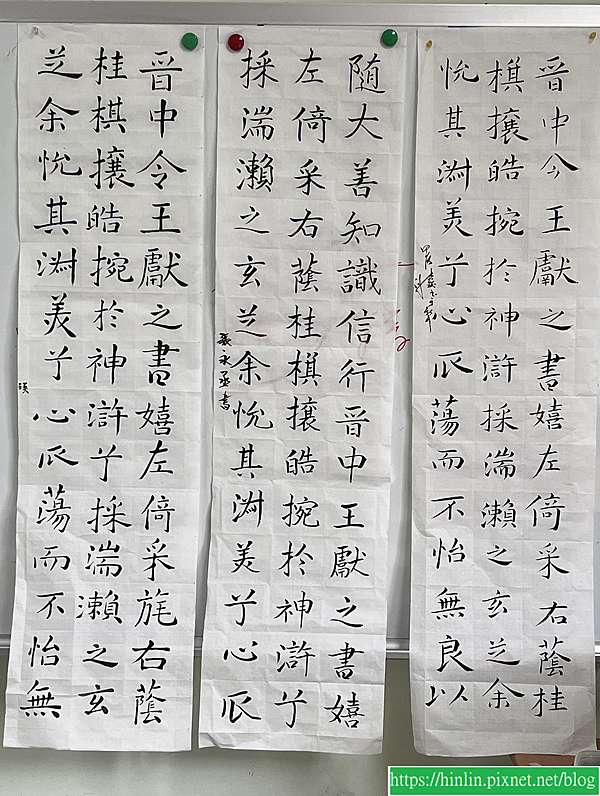 晉中令王獻之書嬉左倚采右蔭桂
棋攘皓捥於神滸採湍瀨之玄芝余
悅其淑美兮心𠂢蕩而不怡無良以
隨大善知識信行晉中王獻之書嬉
左倚采右蔭桂棋攘皓捥於神滸兮
採湍瀨之玄芝余悅其淑美兮心𠂢
張永丞書
晉中令王獻之書嬉左倚采旄右蔭
桂棋攘皓捥於神滸兮採湍瀨之玄
芝余悅其淑美兮心𠂢蕩而不怡無
https://hinlin.pixnet.net/blog